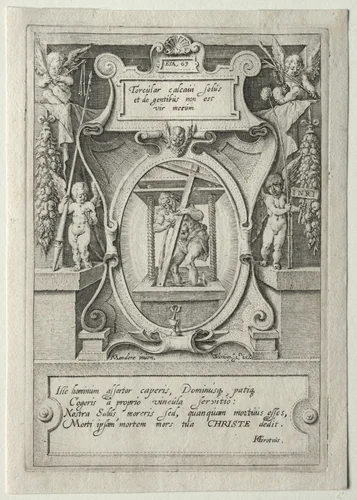 ESA. 63
Torcular calcavi solus
et de gentibus non est
vir mecum
INRI
Mandere inven.
Ille hominum assertor caperis, Dominusq, patiq,
Cogeris à proprio vincula servitio:
Nostra Salus moreris sed, quanquam mortuus esses,
Morti ipsam mortem mors tua CHRISTE dedit.